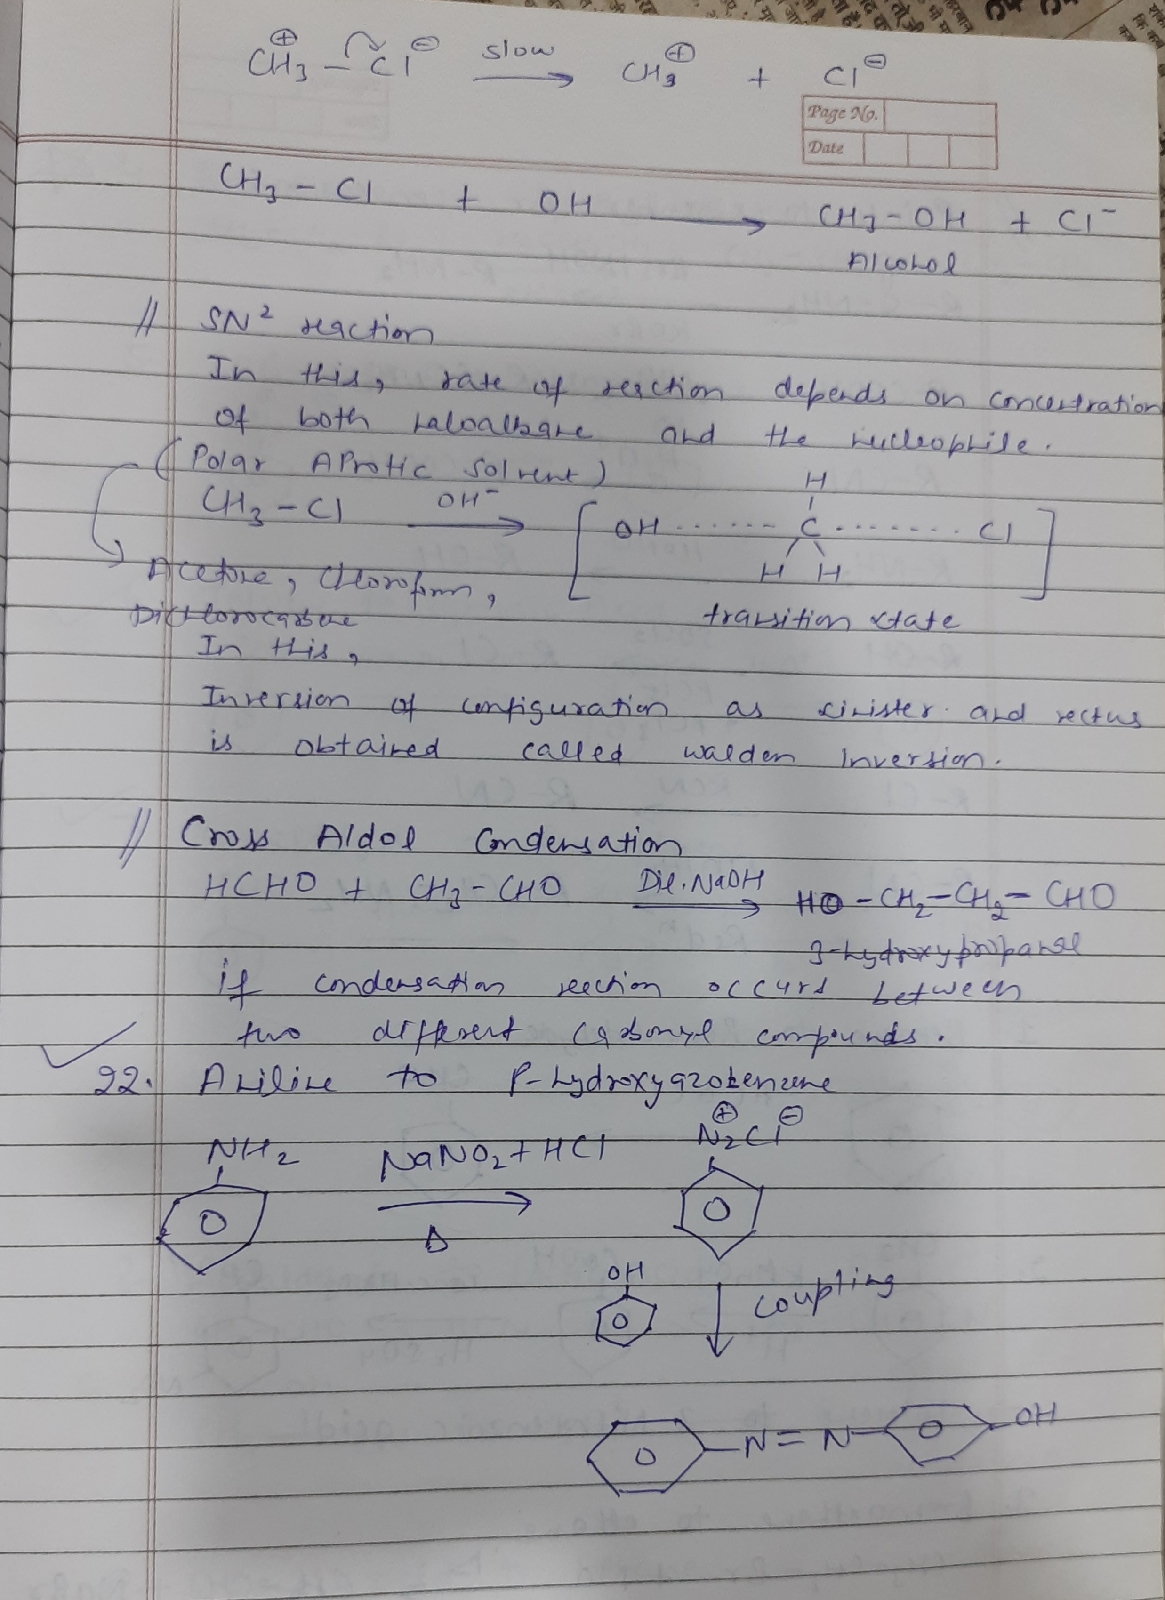 CH3⊕ – Cl⊖ slow → CH3⊕ + Cl⊖
Page No.
Date
CH3 – Cl + OH → CH3 – OH + Cl⁻
Alcohol
// SN² reaction
In this, rate of reaction depends on concentration
of both haloalkane and the nucleophile.
(Polar Aprotic Solvent)
CH3 – Cl OH⁻ → [OH ...... C ....... Cl]
H
H H
Acetone, Chloroform, transition state
Dichlorocarbene
In this,
Inversion of configuration as sinister and rectus
is obtained called walden inversion.
// Cross Aldol Condensation
HCHO + CH3 – CHO Dil. NaOH → HO – CH2 – CH2 – CHO
3-hydroxypropanal
if condensation reaction occurs between
two different carbonyl compounds.
22. Aniline to P-hydroxyazobenzene
NH2 NaNO2 + HCl → N2⊕Cl⊖
Δ
OH ↓ coupling
N = N OH